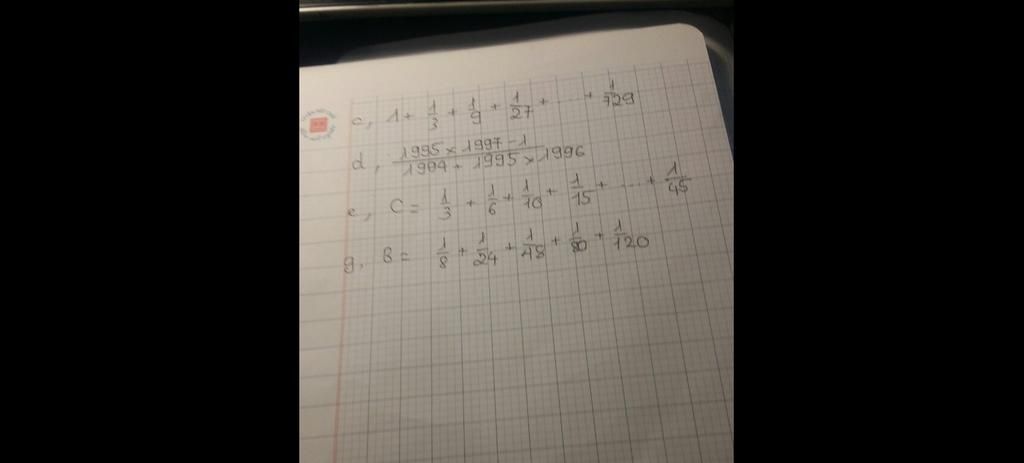 c, 1 + 1/3 + 1/9 + 1/27 + ... + 1/729
d, (1995 × 1997 - 1)/(1994 + 1995 × 1996)
e, C = 1/3 + 1/6 + 1/10 + 1/15 + ... + 1/45
g, B = 1/8 + 1/24 + 1/48 + 1/80 + 1/120